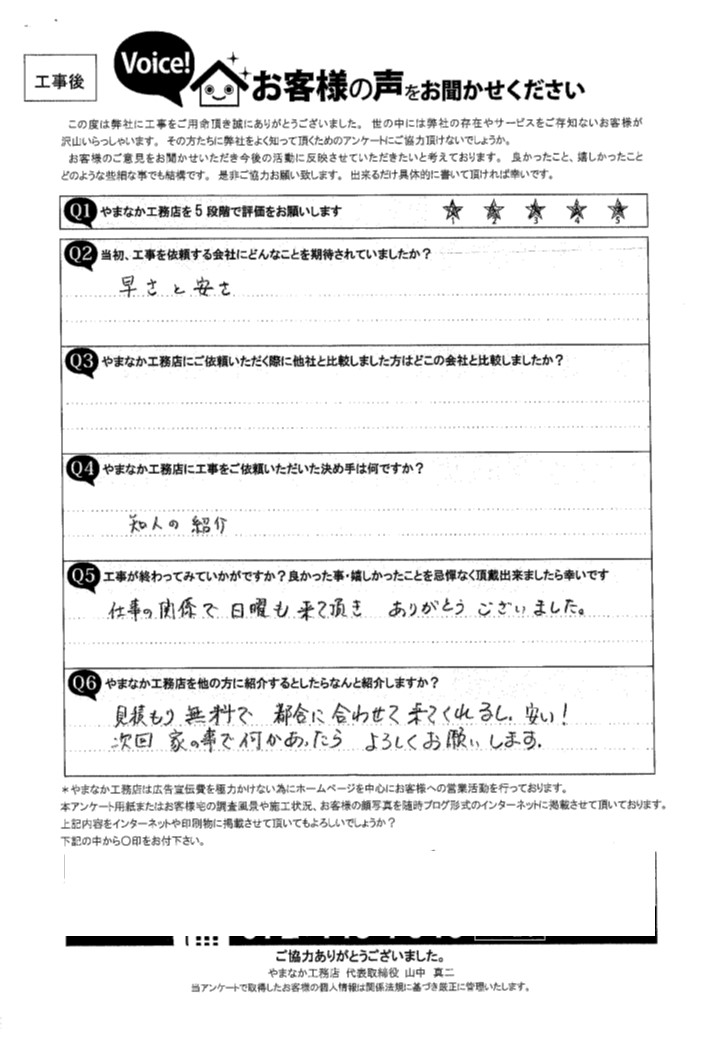 工事後
Voice!
お客様の声をお聞かせください
この度は弊社に工事をご用命頂き誠にありがとうございました。世の中には弊社の存在やサービスをご存知ないお客様が
沢山いらっしゃいます。その方たちに弊社をよく知って頂くためのアンケートにご協力頂けないでしょうか。
お客様のご意見をお聞かせいただき今後の活動に反映させていただきたいと考えております。良かったこと、嬉しかったこと
どのような些細な事でも結構です。是非ご協力お願い致します。出来るだけ具体的に書いて頂ければ幸いです。
Q1 やまなか工務店を5段階で評価をお願いします 1 2 3 4 5
Q2 当初、工事を依頼する会社にどんなことを期待されていましたか？
早さと安さ
Q3 やまなか工務店にご依頼いただく際に他社と比較しました方はどこの会社と比較しましたか？
Q4 やまなか工務店に工事をご依頼いただいた決め手は何ですか？
知人の紹介
Q5 工事が終わってみていかがですか？良かった事・嬉しかったことを忌憚なく頂戴出来ましたら幸いです
仕事の関係で日曜も来て頂き ありがとうございました。
Q6 やまなか工務店を他の方に紹介するとしたらなんと紹介しますか？
見積もり無料で 都合に合わせて来てくれるし、安い！
次回 家の事で何かあったら よろしくお願いします。
＊やまなか工務店は広告宣伝費を極力かけない為にホームページを中心にお客様への営業活動を行っております。
本アンケート用紙またはお客様宅の調査風景や施工状況、お客様の顔写真を随時ブログ形式のインターネットに掲載させて頂いております。
上記内容をインターネットや印刷物に掲載させて頂いてもよろしいでしょうか？
下記の中から〇印をお付下さい。
ご協力ありがとうございました。
やまなか工務店 代表取締役 山中 真二
当アンケートで取得したお客様の個人情報は関係法規に基づき厳正に管理いたします。